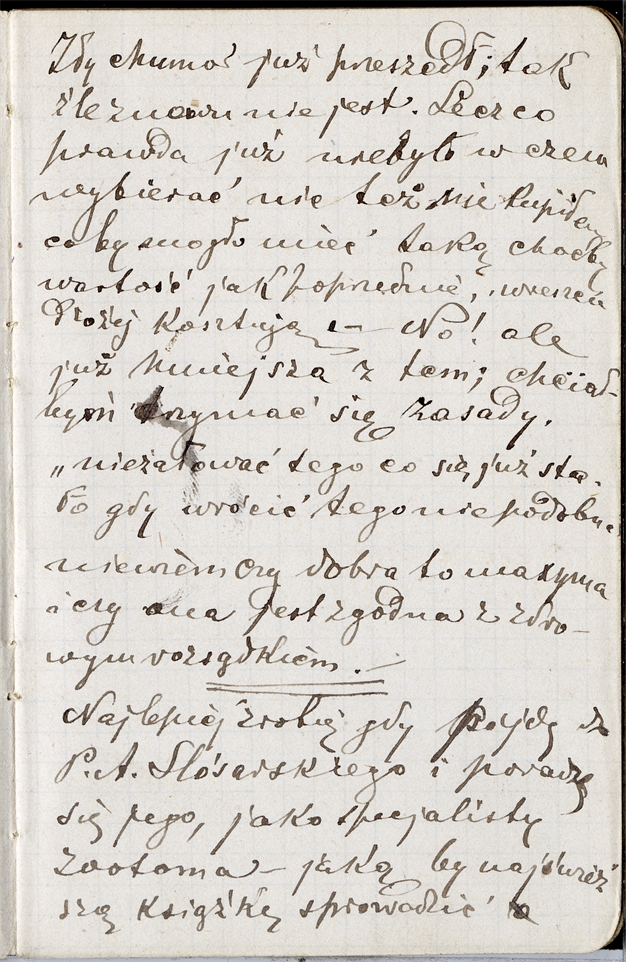 Gdy chumor już przeszedł; tak
źle znowu nie jest. Lecz co
prawda już niebyło w czem
wybierać nic też nie kupiłem
coby mogło mieć taką choćby
wartość jak poprzednie, wreszcie
drożej kosztują — No! ale
już mniejsza z tem; chciał-
bym trzymać się zasady.
„nieżałować tego co się już sta-
ło gdy wrócić tego niepodobna
niewiem czy dobra to maxyma
i czy ona jest zgodna z zdro-
wym rozsądkiem. —
Najlepiej zrobię gdy pójdę do
P. A. Slósarskiego i poradzę
się jego, jako specjalisty
zootoma — jaką by najśwież
szą książkę sprowadzić a